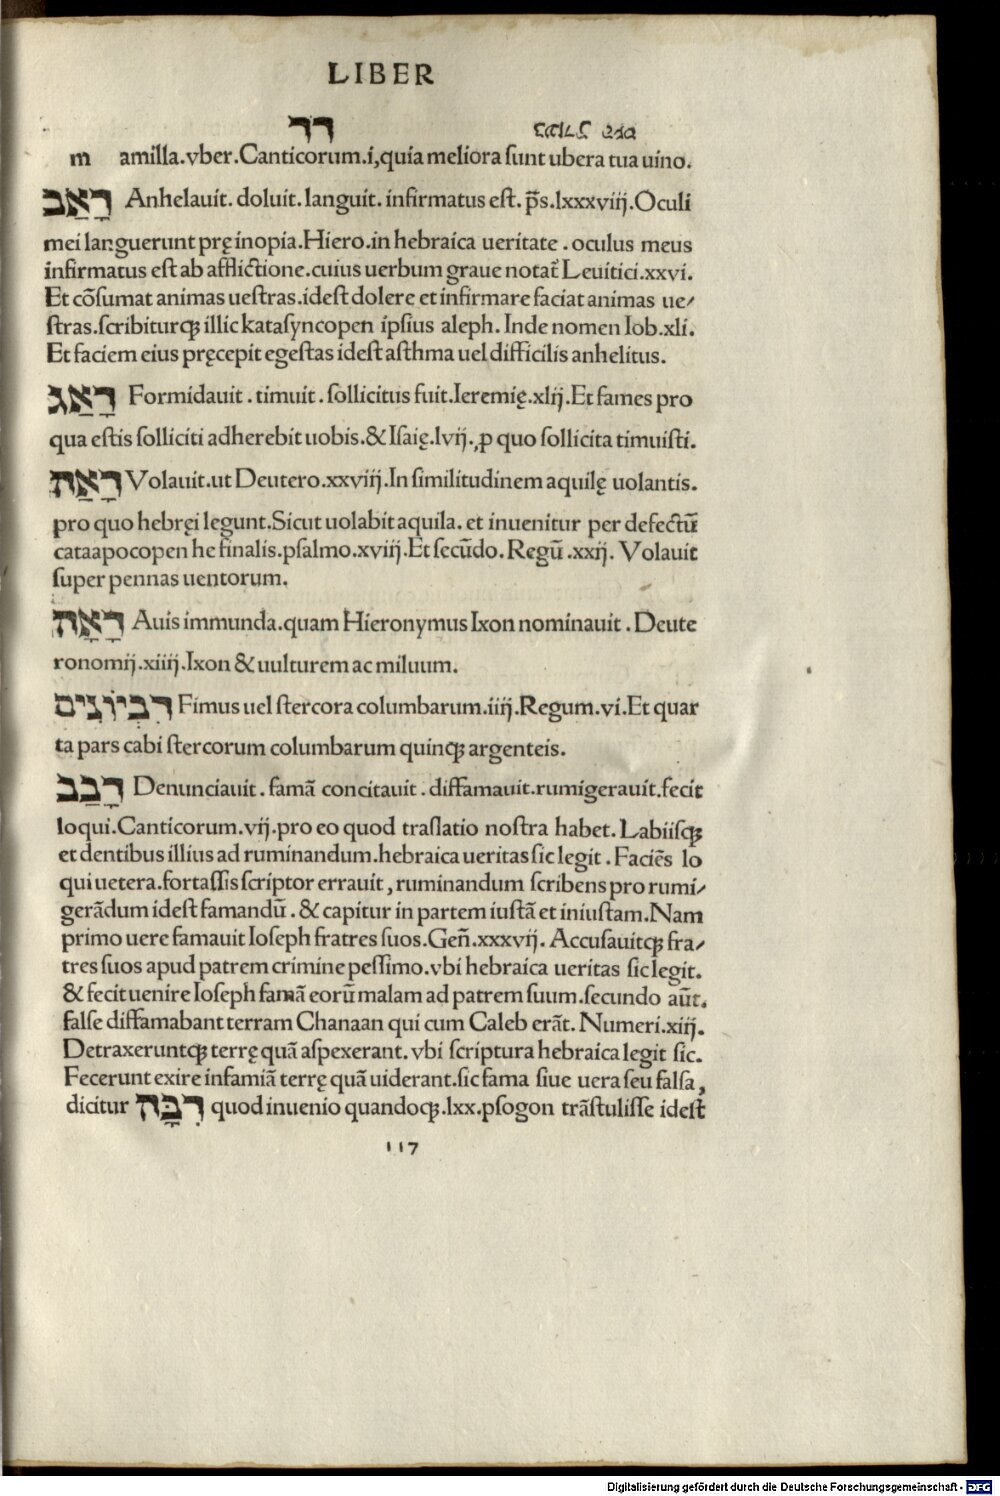 LIBER
דד
m amilla.vber.Canticorum.i,quia meliora sunt ubera tua uino.
דָאַב Anhelauit. doluit. languit. infirmatus est. p̄s.lxxxviij.Oculi
mei languerunt pręinopia.Hiero.in hebraica ueritate . oculus meus
infirmatus est ab afflictione.cuius uerbum graue notat̃ Leuitici.xxvi.
Et cõsumat animas uestras.idest dolere et infirmare faciat animas ue/
stras.scribiturqꝫ illic katasyncopen ipsius aleph. Inde nomen Iob.xli.
Et faciem eius pręcepit egestas idest asthma uel difficilis anhelitus.
דָאַג Formidauit . timuit . sollicitus fuit.Ieremię.xlij.Et fames pro
qua estis solliciti adherebit uobis.&Isaię.lvij.,ꝓ quo sollicita timuisti.
דָאַה Volauit.ut Deutero.xxviij.In similitudinem aquilę uolantis.
pro quo hebręi legunt.Sicut uolabit aquila. et inuenitur per defectũ
cataapocopen he finalis.psalmo.xviij.Et secũdo. Regũ .xxij. Volauit
super pennas uentorum.
דָאָה Auis immunda.quam Hieronymus Ixon nominauit . Deute
ronomij.xiiij.Ixon & uulturem ac miluum.
דִבְיוֹנִים Fimus uel stercora columbarum.iiij.Regum.vi.Et quar
ta pars cabi stercorum columbarum quinqꝫ argenteis.
דָבַב Denunciauit . famã concitauit . diffamauit.rumigerauit.fecit
loqui.Canticorum.vij.pro eo quod traslatio nostra habet. Labiisqꝫ
et dentibus illius ad ruminandum.hebraica ueritas sic legit . Faciẽs lo
qui uetera.fortassis scriptor errauit , ruminandum scribens pro rumi/
gerãdum idest famandũ . & capitur in partem iustã et iniustam.Nam
primo uere famauit Ioseph fratres suos.Geñ.xxxvij. Accusauitqꝫ fra/
tres suos apud patrem crimine pessimo.vbi hebraica ueritas sic legit.
& fecit uenire Ioseph famã eorũ malam ad patrem suum.secundo aũt.
false diffamabant terram Chanaan qui cum Caleb erãt. Numeri.xiij.
Detraxeruntqꝫ terrę quã aspexerant. vbi scriptura hebraica legit sic.
Fecerunt exire infamiã terrę quã uiderant.sic fama siue uera seu falsa ,
dicitur דִבָּה quod inuenio quandoqꝫ.lxx.psogon trãstulisse idest
117
Digitalisierung gefördert durch die Deutsche Forschungsgemeinschaft - DFG